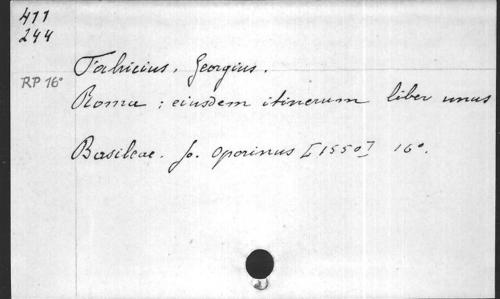 411
244
RP 16°
Fabricius, Georgius.
Roma : eiusdem itinerum liber unus
Basileae. Jo. Oporinus [1550] 16°.